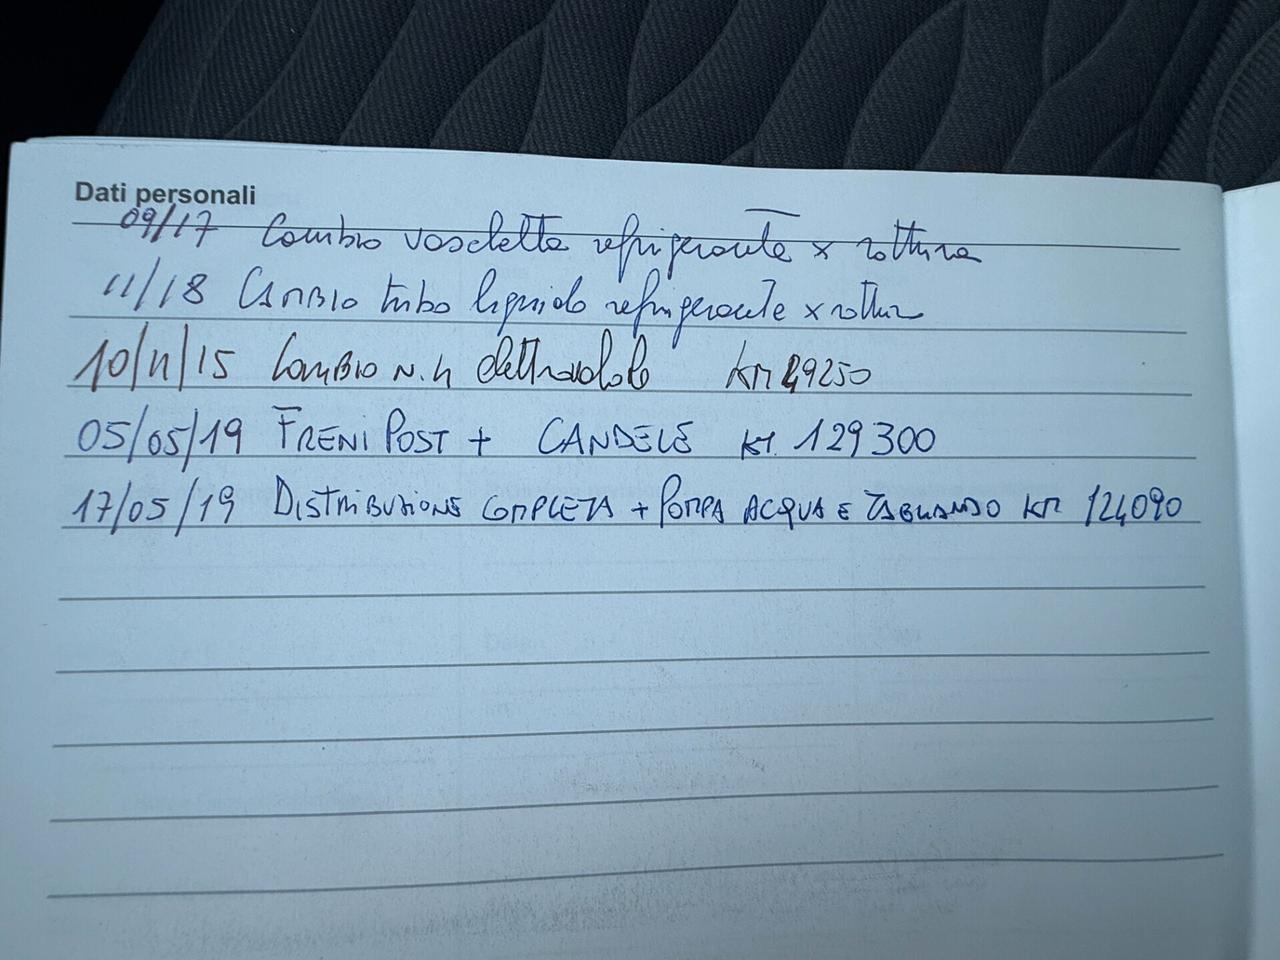 Dati personali
09/17 Cambio vaschetta refrigerante x rottura
11/18 CAMBIO tubo liquido refrigerante x rottur
10/11/15 CAMBIO N. 4 elettrovalvole KM 49250
05/05/19 FRENI POST + CANDELE KM. 129300
17/05/19 DISTRIBUZIONE COMPLETA + POMPA ACQUA E TAGLIANDO KM 124090